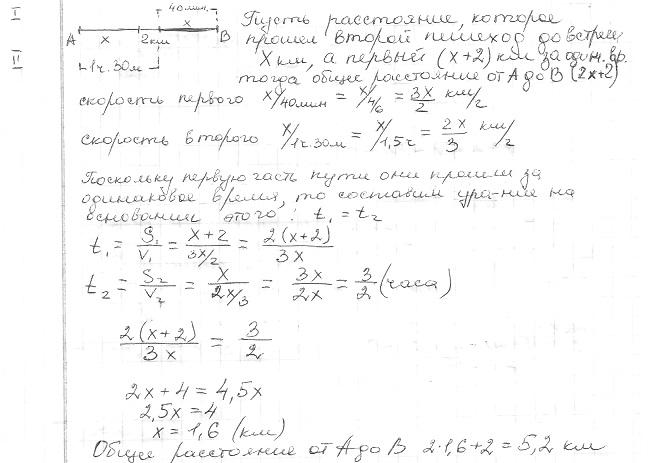 I
II
40 мин.
A x 2км x B
1ч. 30м
Пусть расстояние, которое
прошел второй пешеход до встречи
X км, а первый (x+2) км за один. вр.
тогда общее расстояние от А до В (2x+2)
скорость первого x/40мин = x/4/6 = 3x/2 км/г
скорость второго x/1ч.30м = x/1,5ч = 2x/3 км/г
Поскольку первую часть пути они прошли за
одинаковое время, то составим ура-ние на
основании этого: t₁ = t₂
t₁ = S₁/V₁ = x+2/3x/2 = 2(x+2)/3x
t₂ = S₂/V₂ = x/2x/3 = 3x/2x = 3/2 (часа)
2(x+2)/3x = 3/2
2x + 4 = 4,5x
2,5x = 4
x = 1,6 (км)
Общее расстояние от А до В 2·1,6+2 = 5,2 км